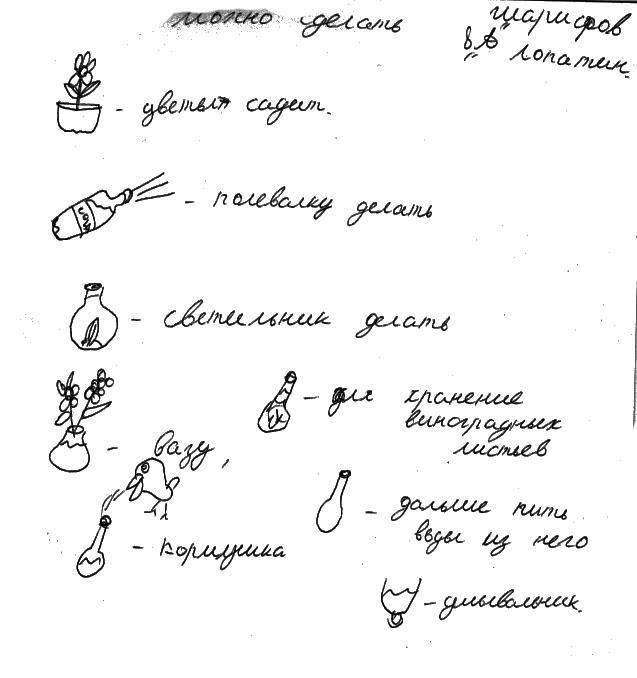 можно делать
Шарифов
8 "А" Лопатин.
- цветы садит.
- полевалку делать
- светильник делать
- вазу,
- для хранение
виноградных
листьев
- коримушка
- дальше пить
воды из него
- умывальник.